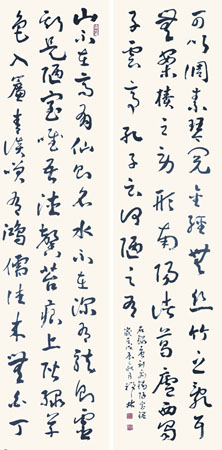 山不在高有仙則名水不在深有龍則靈
斯是陋室唯吾德馨苔痕上階綠草
色入簾青談笑有鴻儒往來無白丁
可以調素琴閱金經無絲竹之亂耳
無案牘之勞形南陽諸葛廬西蜀
子雲亭孔子云何陋之有
右錄唐劉禹錫陋室銘